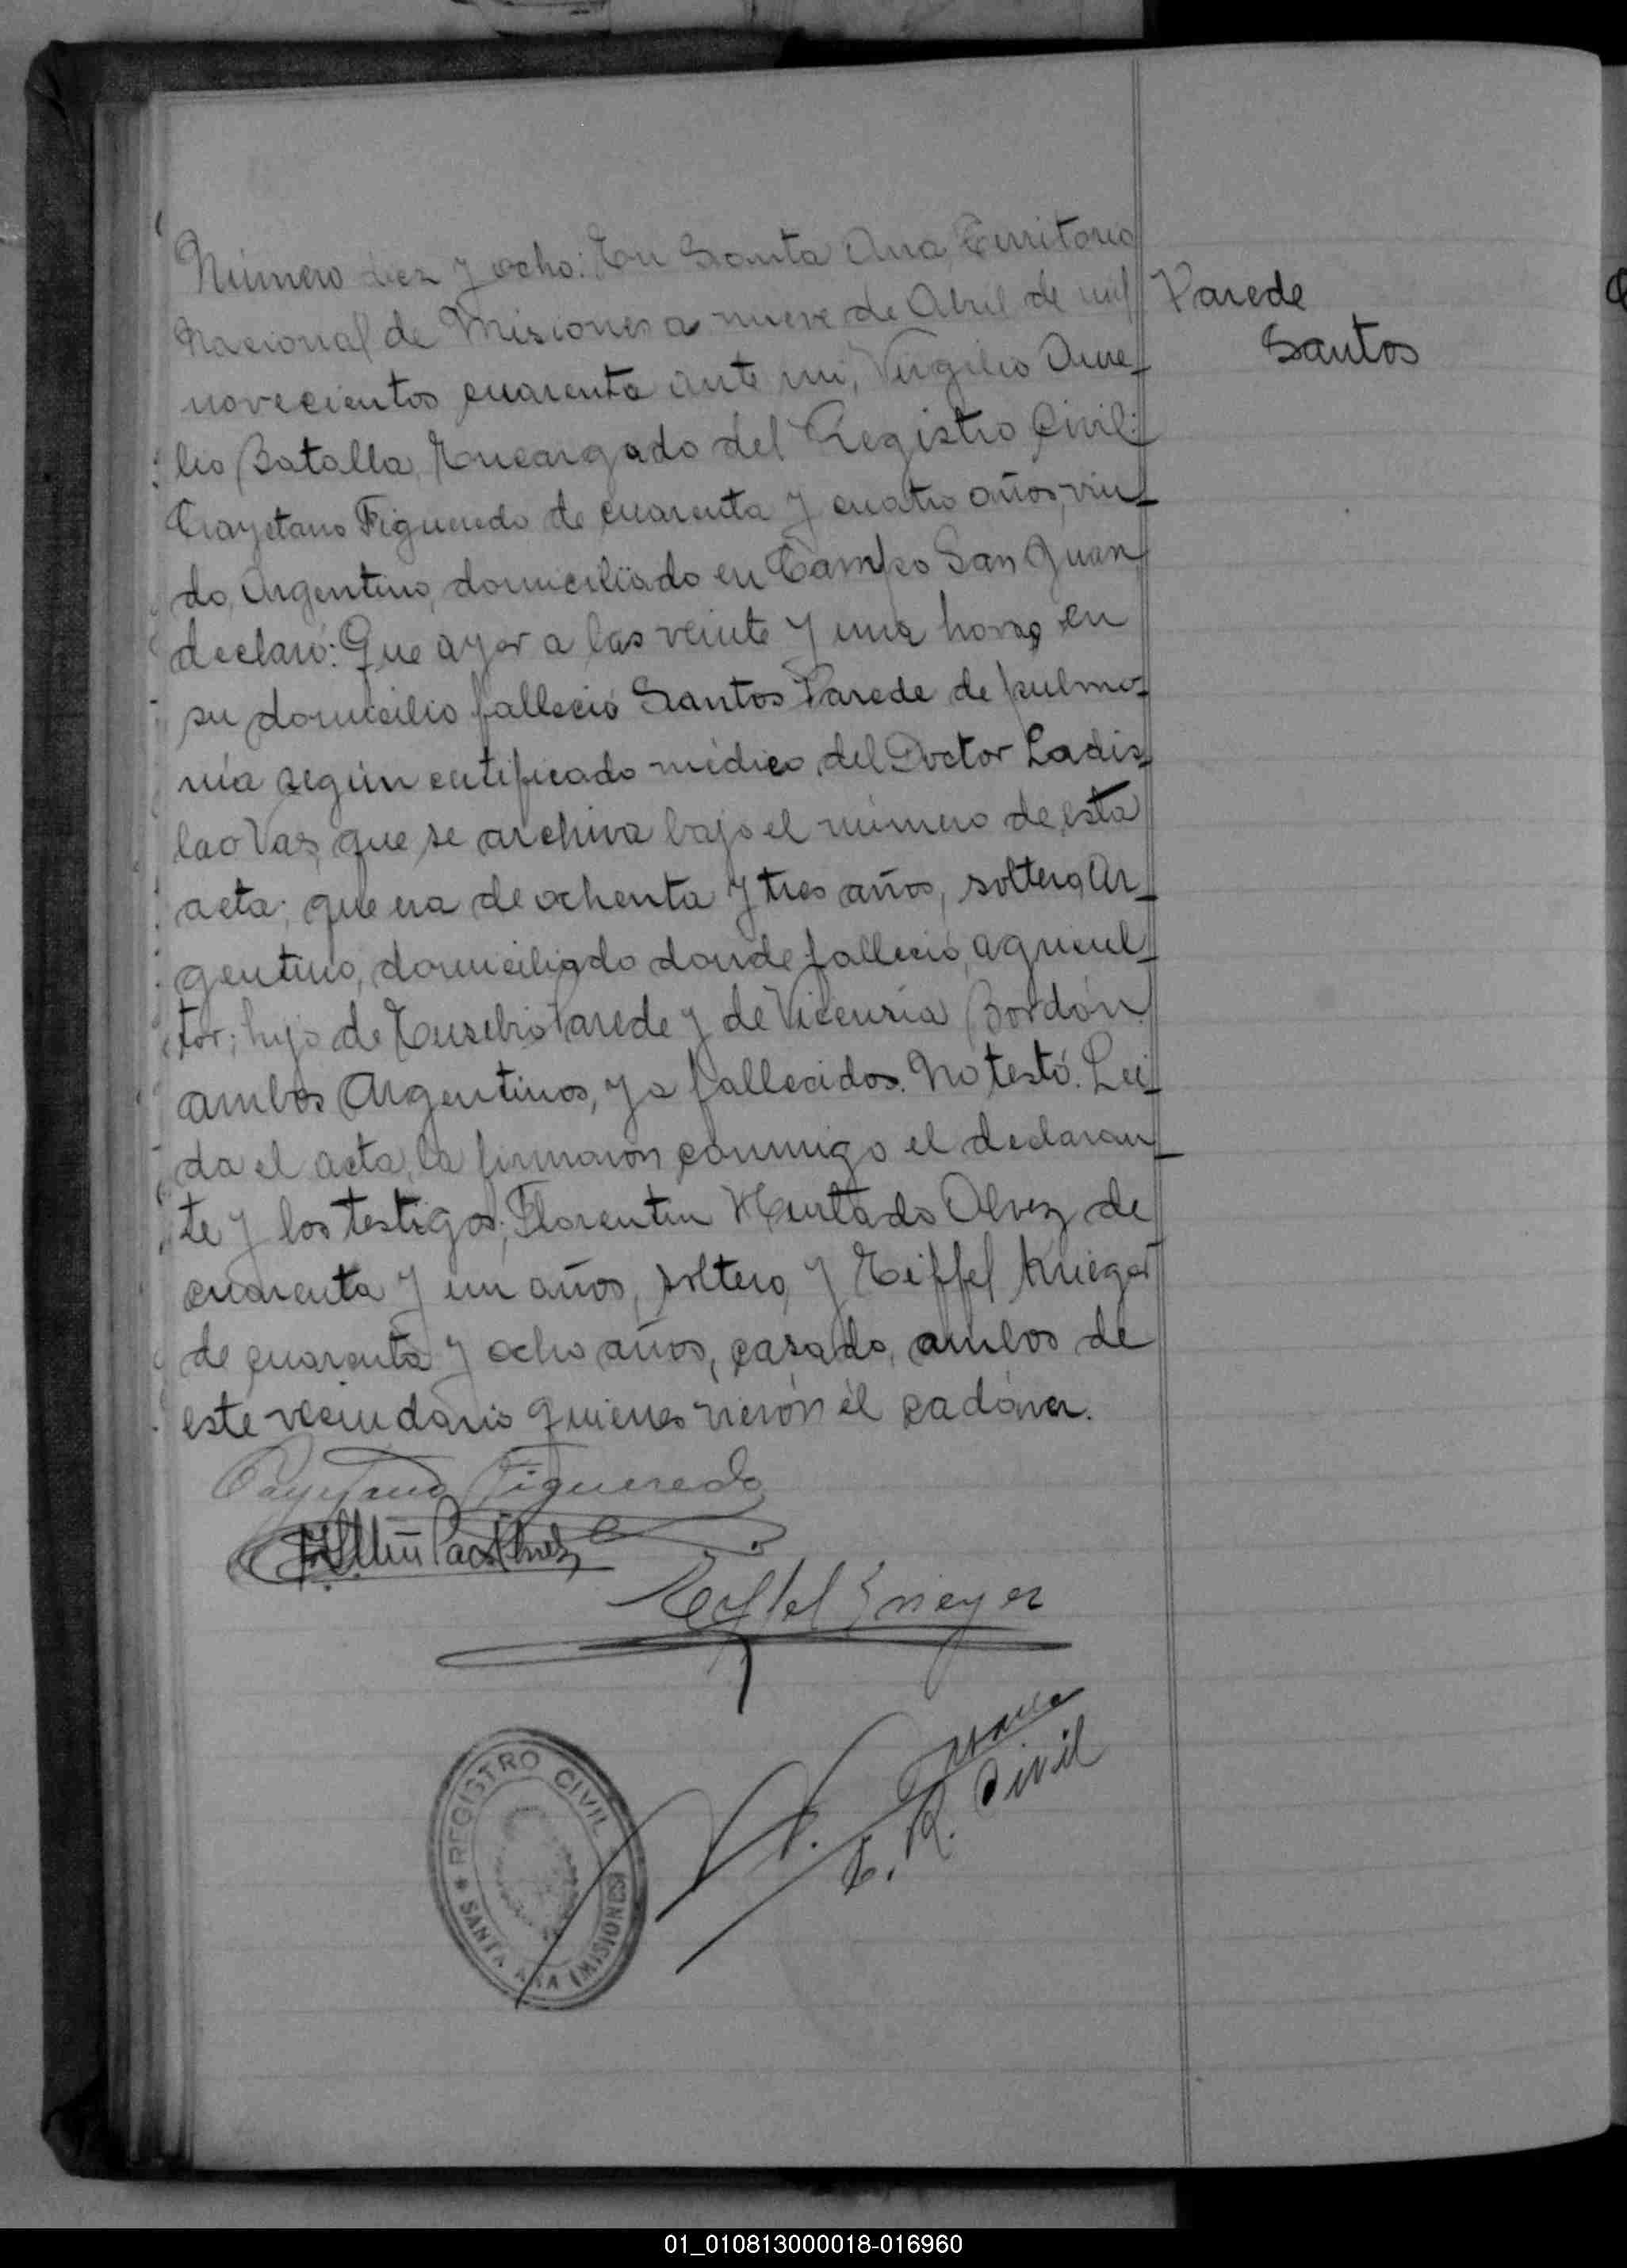 Número diez y ocho: En Santa Ana, Territorio
Nacional de Misiones a nueve de Abril de mil
novecientos cuarenta ante mi, Virgilio Aure-
lio Batalla, Encargado del Registro Civil:
Cayetano Figueredo de cuarenta y cuatro años, viu-
do, Argentino, domiciliado en Campo San Juan,
declaró: Que ayer a las veinte y una horas en
su domicilio falleció Santos Parede de pulmo-
nía según certificado médico del Doctor Ladis-
lao Vas, que se archiva bajo el número de esta
acta; que era de ochenta y tres años, soltero, Ar-
gentino, domiciliado donde falleció, agricul-
tor; hijo de Eusebio Parede y de Vicensia Bordón
ambos Argentinos, ya fallecidos. No testó. Leí-
da el acta, la firmaron conmigo el declaran-
te y los testigos; Florentin Hurtado Alvez de
cuarenta y un años, soltero, y Eiffel Krieger
de cuarenta y ocho años, casado, ambos de
este vecindario quienes vierón él cadáver.
Parede
Santos
Cayetano Figueredo
Eiffel Krieger
E. R. Civil
REGISTRO CIVIL
* SANTA ANA (MISIONES)
01_010813000018-016960